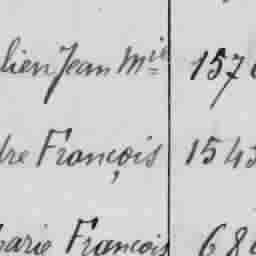 lien Jean Mie 157
dre François 1543
parie François 68